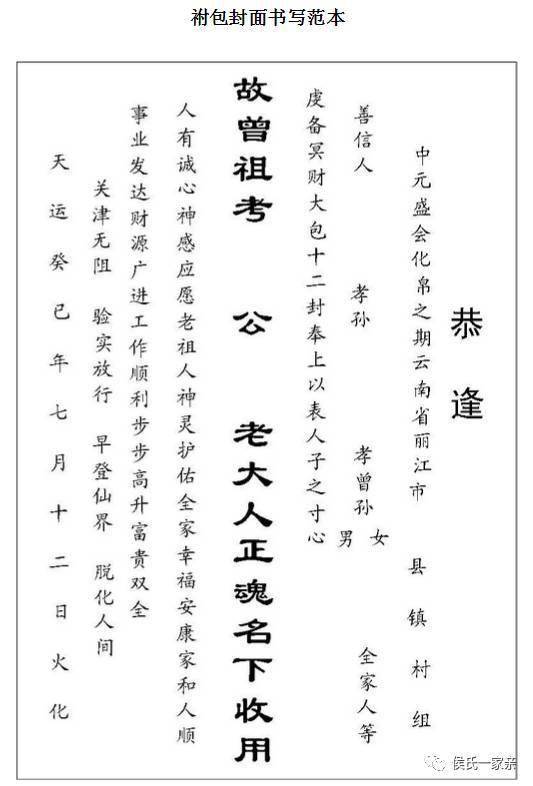 袝包封面书写范本
恭逢
中元盛会化帛之期云南省丽江市 县 镇 村 组
善信人 孝孙 孝曾孙 男 女 全家人等
虔备冥财大包十二封奉上以表人子之寸心
故曾祖考 公 老大人正魂名下收用
人有诚心神感应愿老祖人神灵护佑全家幸福安康家和人顺
事业发达财源广进工作顺利步步高升富贵双全
关津无阻 验实放行 早登仙界 脱化人间
天运癸巳年七月十二日火化
侯氏一家亲